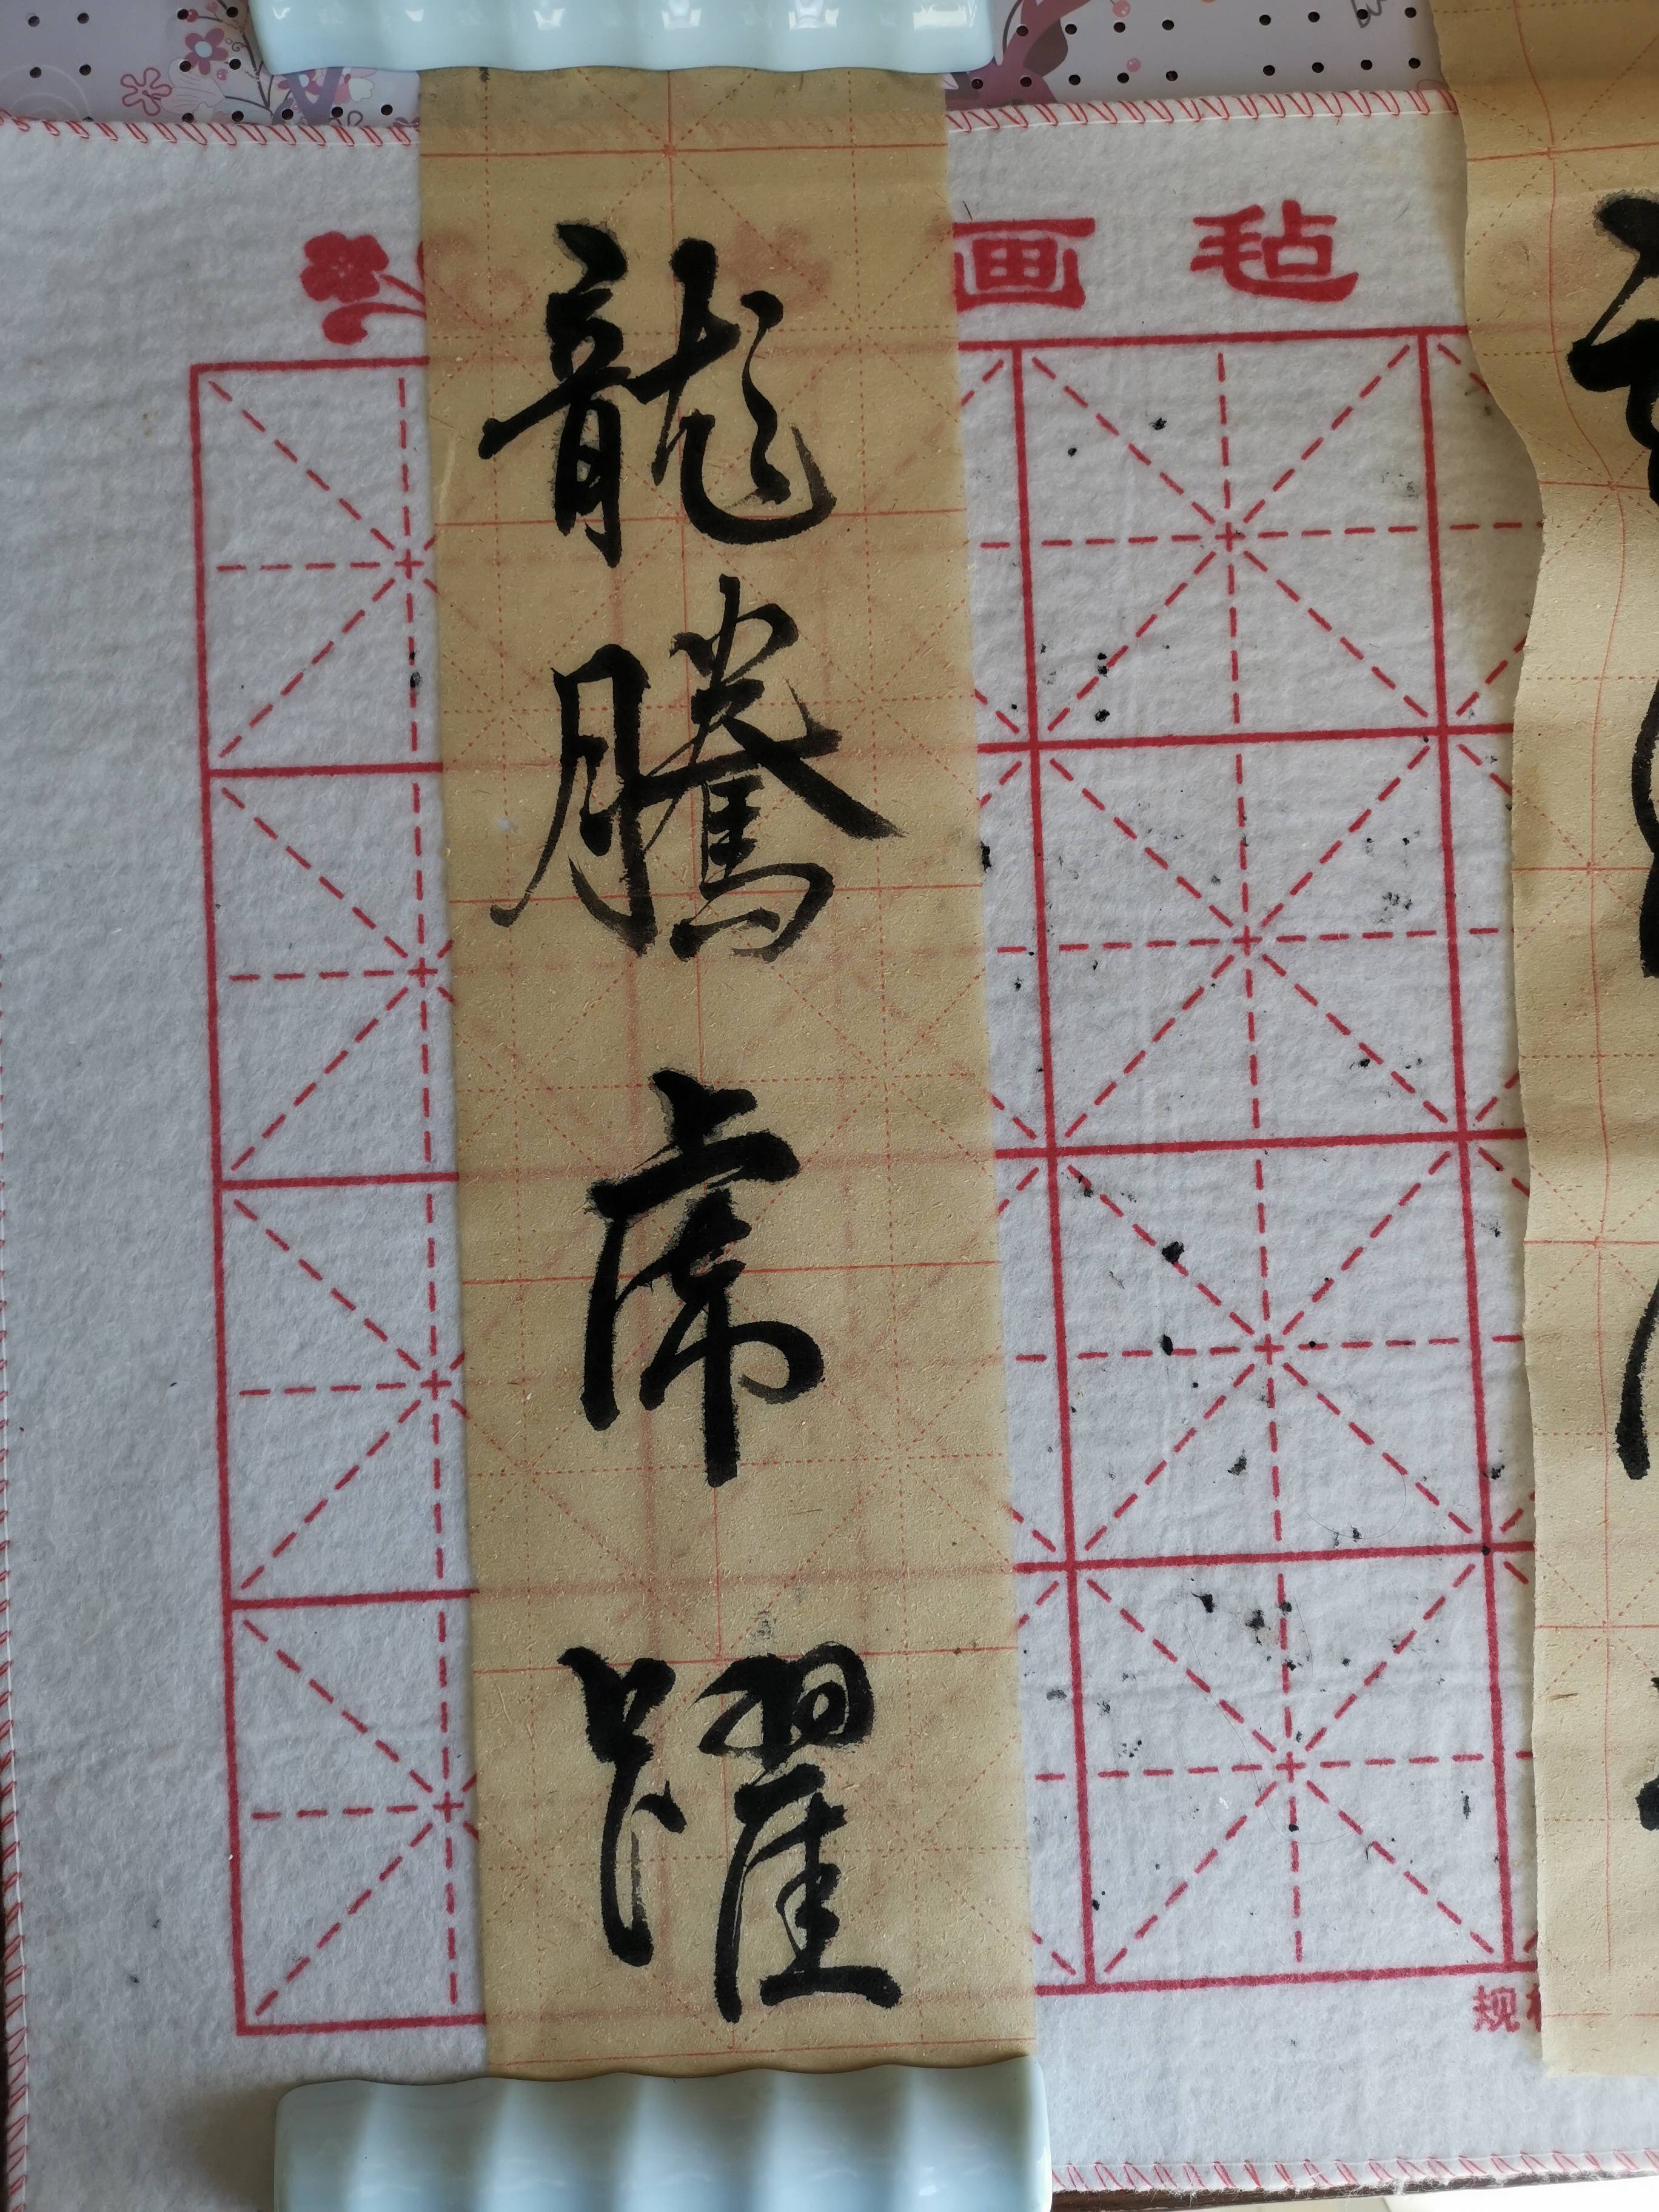 画毡
龍騰虎躍
规